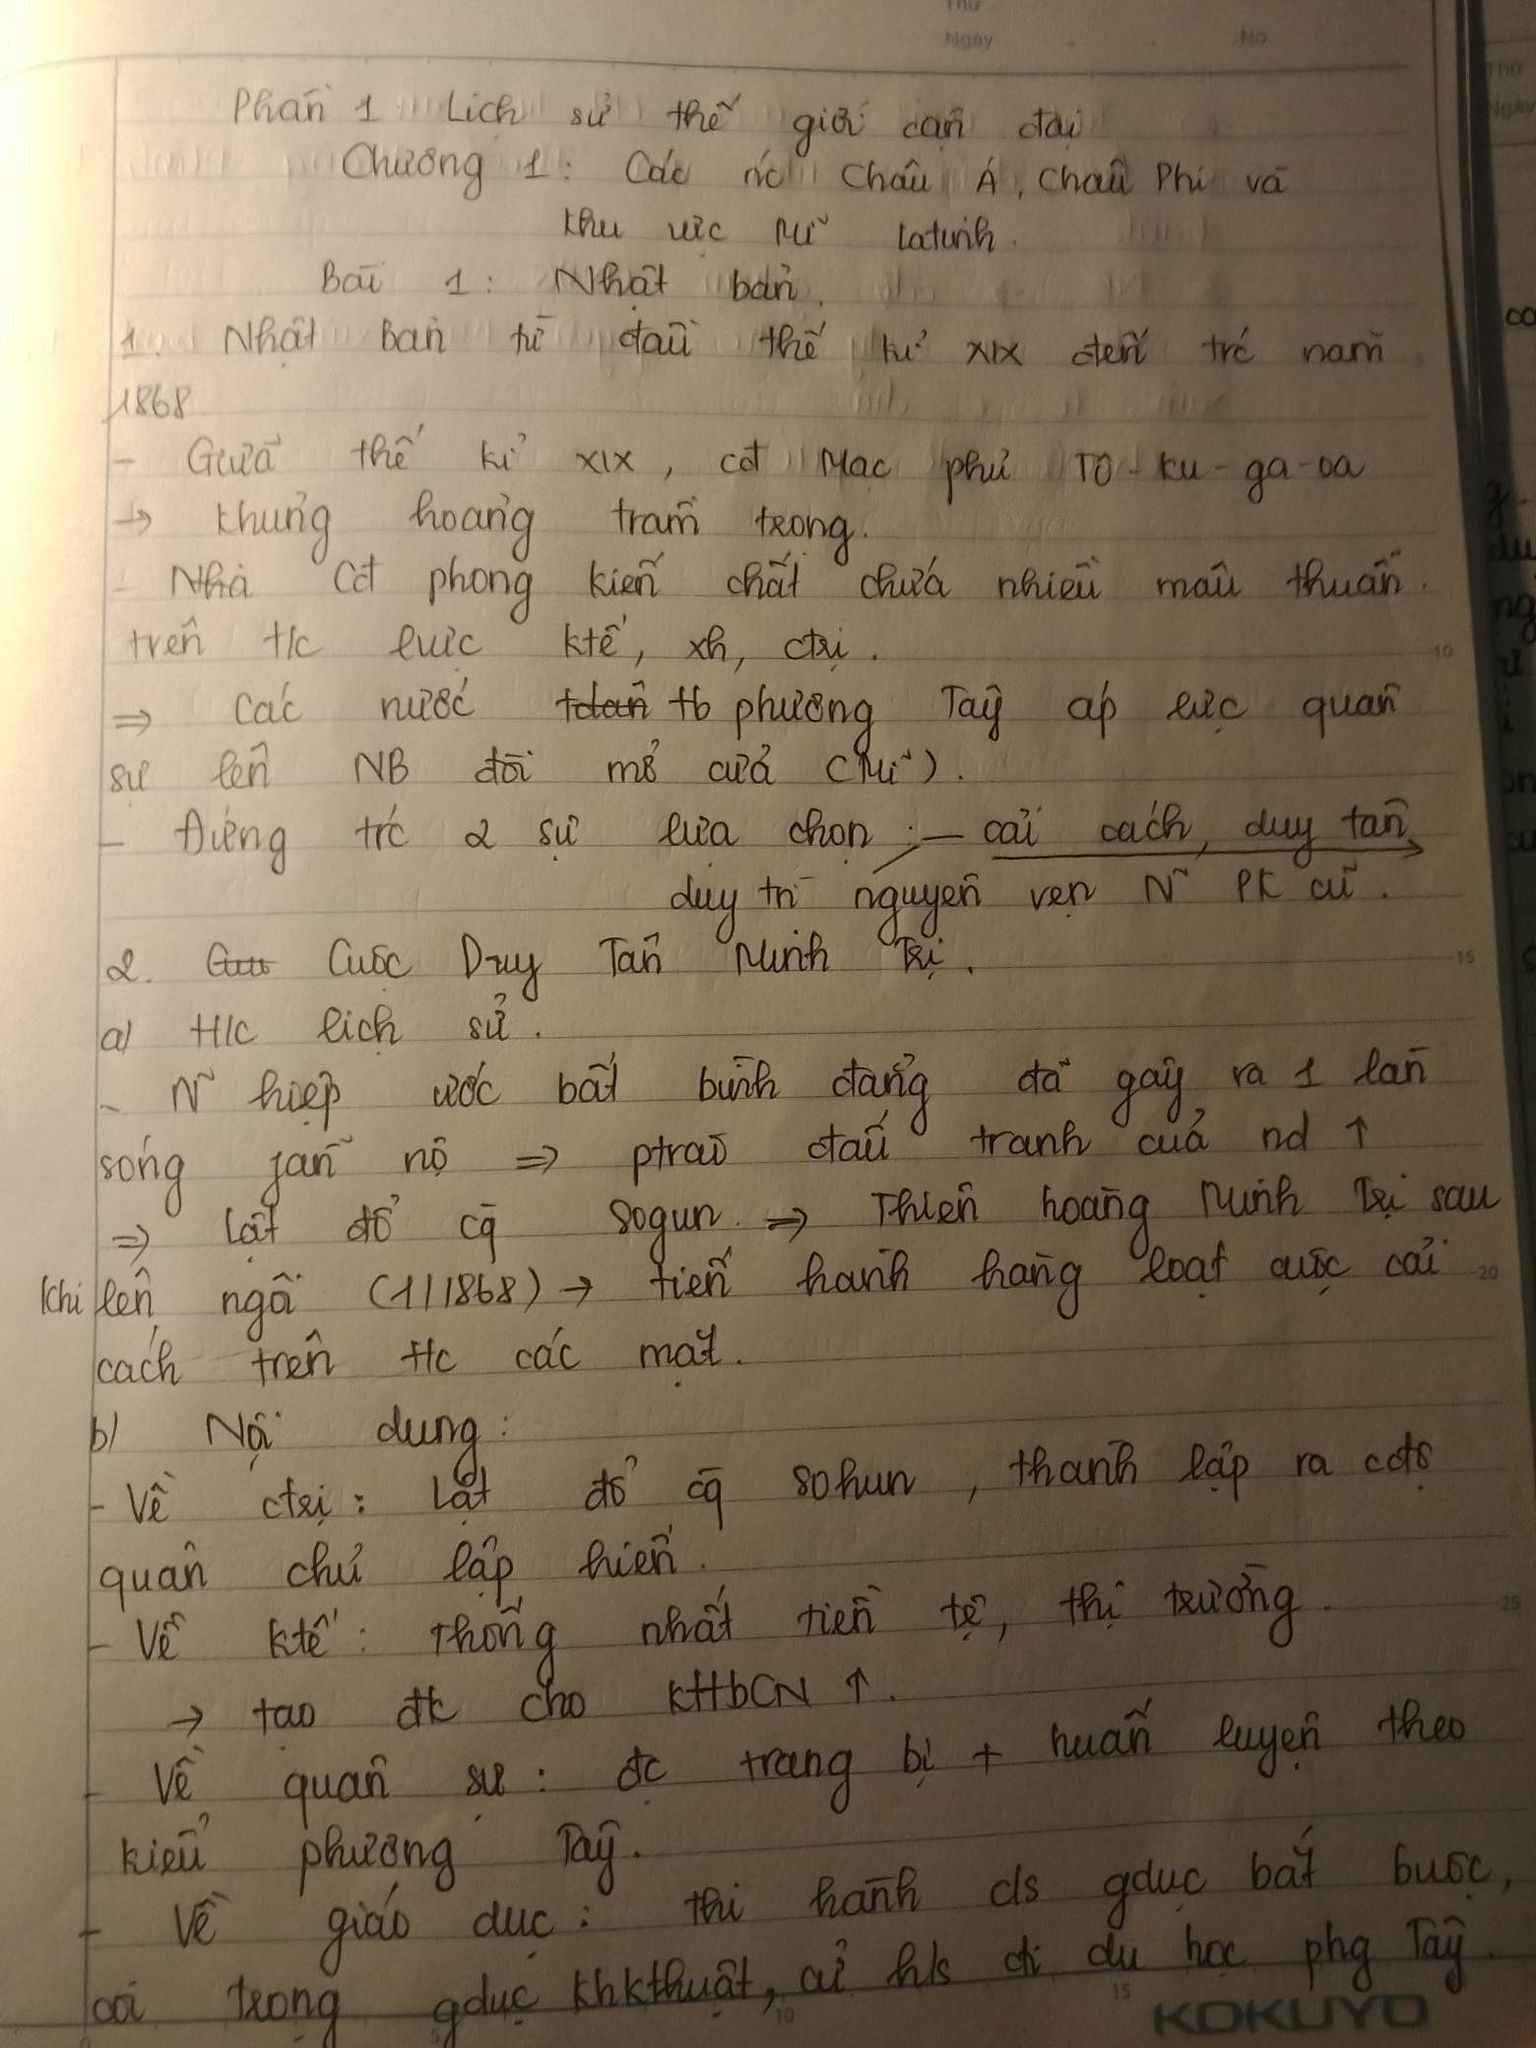 Thứ
Ngày No
Phần 1 Lịch sử thế giới cận đại
Chương 1: Các nc Châu Á, Châu Phi và
khu vực Mĩ latinh.
Bài 1: Nhật bản.
1. Nhật Bản từ đầu thế kỉ XIX đến trc năm
1868
- Giữa thế kỉ XIX, cđ Mạc phủ TO-ku-ga-oa
→ khủng hoảng trầm trọng.
- Nhà cđ phong kiến chất chứa nhiều mâu thuẫn
trên t/c lvực ktế, xh, ctrị.
⇒ Các nước tdân tb phương Tây áp lực quân
sự lên NB đòi mở cửa (Mĩ).
- Đứng trc 2 sự lựa chọn: - cải cách, duy tân
duy trì nguyên vẹn N~ PK cũ.
2. Cuộc Duy Tân Minh Trị.
a) H/c lịch sử.
- N~ hiệp ước bất bình đẳng đã gây ra 1 làn
sóng fẫn nộ ⇒ ptrào đấu tranh của nd ↑
⇒ Lật đổ cq Sogun. ⇒ Thiên hoàng Minh Trị sau
khi lên ngôi (1/1868) → tiến hành hàng loạt cuộc cải
cách trên t/c các mặt.
b) Nội dung:
- Về ctrị: Lật đổ cq sohun, thành lập ra cđộ
quân chủ lập hiến.
- Về ktế: Thống nhất tiền tệ, thị trường.
→ tạo đk cho kttbCN ↑.
- Về quân sự: đc trang bị + huấn luyện theo
kiểu phương Tây.
- Về giáo dục: thi hành c/s gdục bắt buộc,
coi trọng gdục khkthuật, cử h/s đi du học phg Tây.
KOKUYO